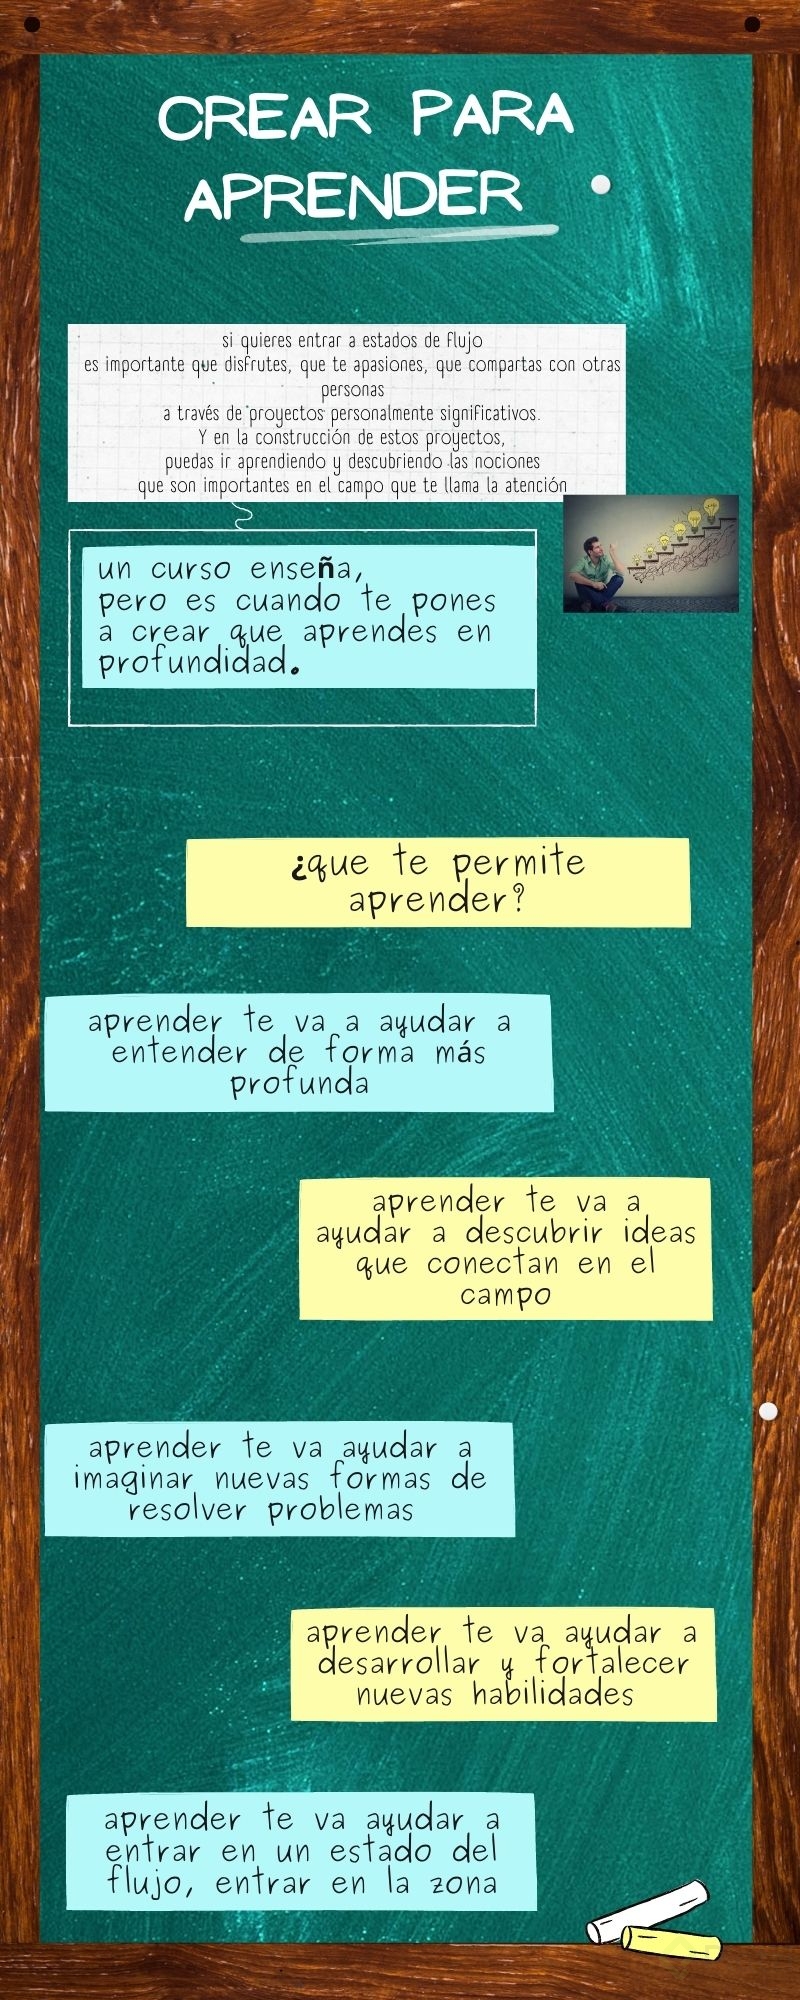 CREAR PARA
APRENDER
si quieres entrar a estados de flujo
es importante que disfrutes, que te apasiones, que compartas con otras
personas
a través de proyectos personalmente significativos.
Y en la construcción de estos proyectos,
puedas ir aprendiendo y descubriendo las nociones
que son importantes en el campo que te llama la atención
un curso enseña,
pero es cuando te pones
a crear que aprendes en
profundidad.
¿que te permite
aprender?
aprender te va a ayudar a
entender de forma más
profunda
aprender te va a
ayudar a descubrir ideas
que conectan en el
campo
aprender te va ayudar a
imaginar nuevas formas de
resolver problemas
aprender te va ayudar a
desarrollar y fortalecer
nuevas habilidades
aprender te va ayudar a
entrar en un estado del
flujo, entrar en la zona